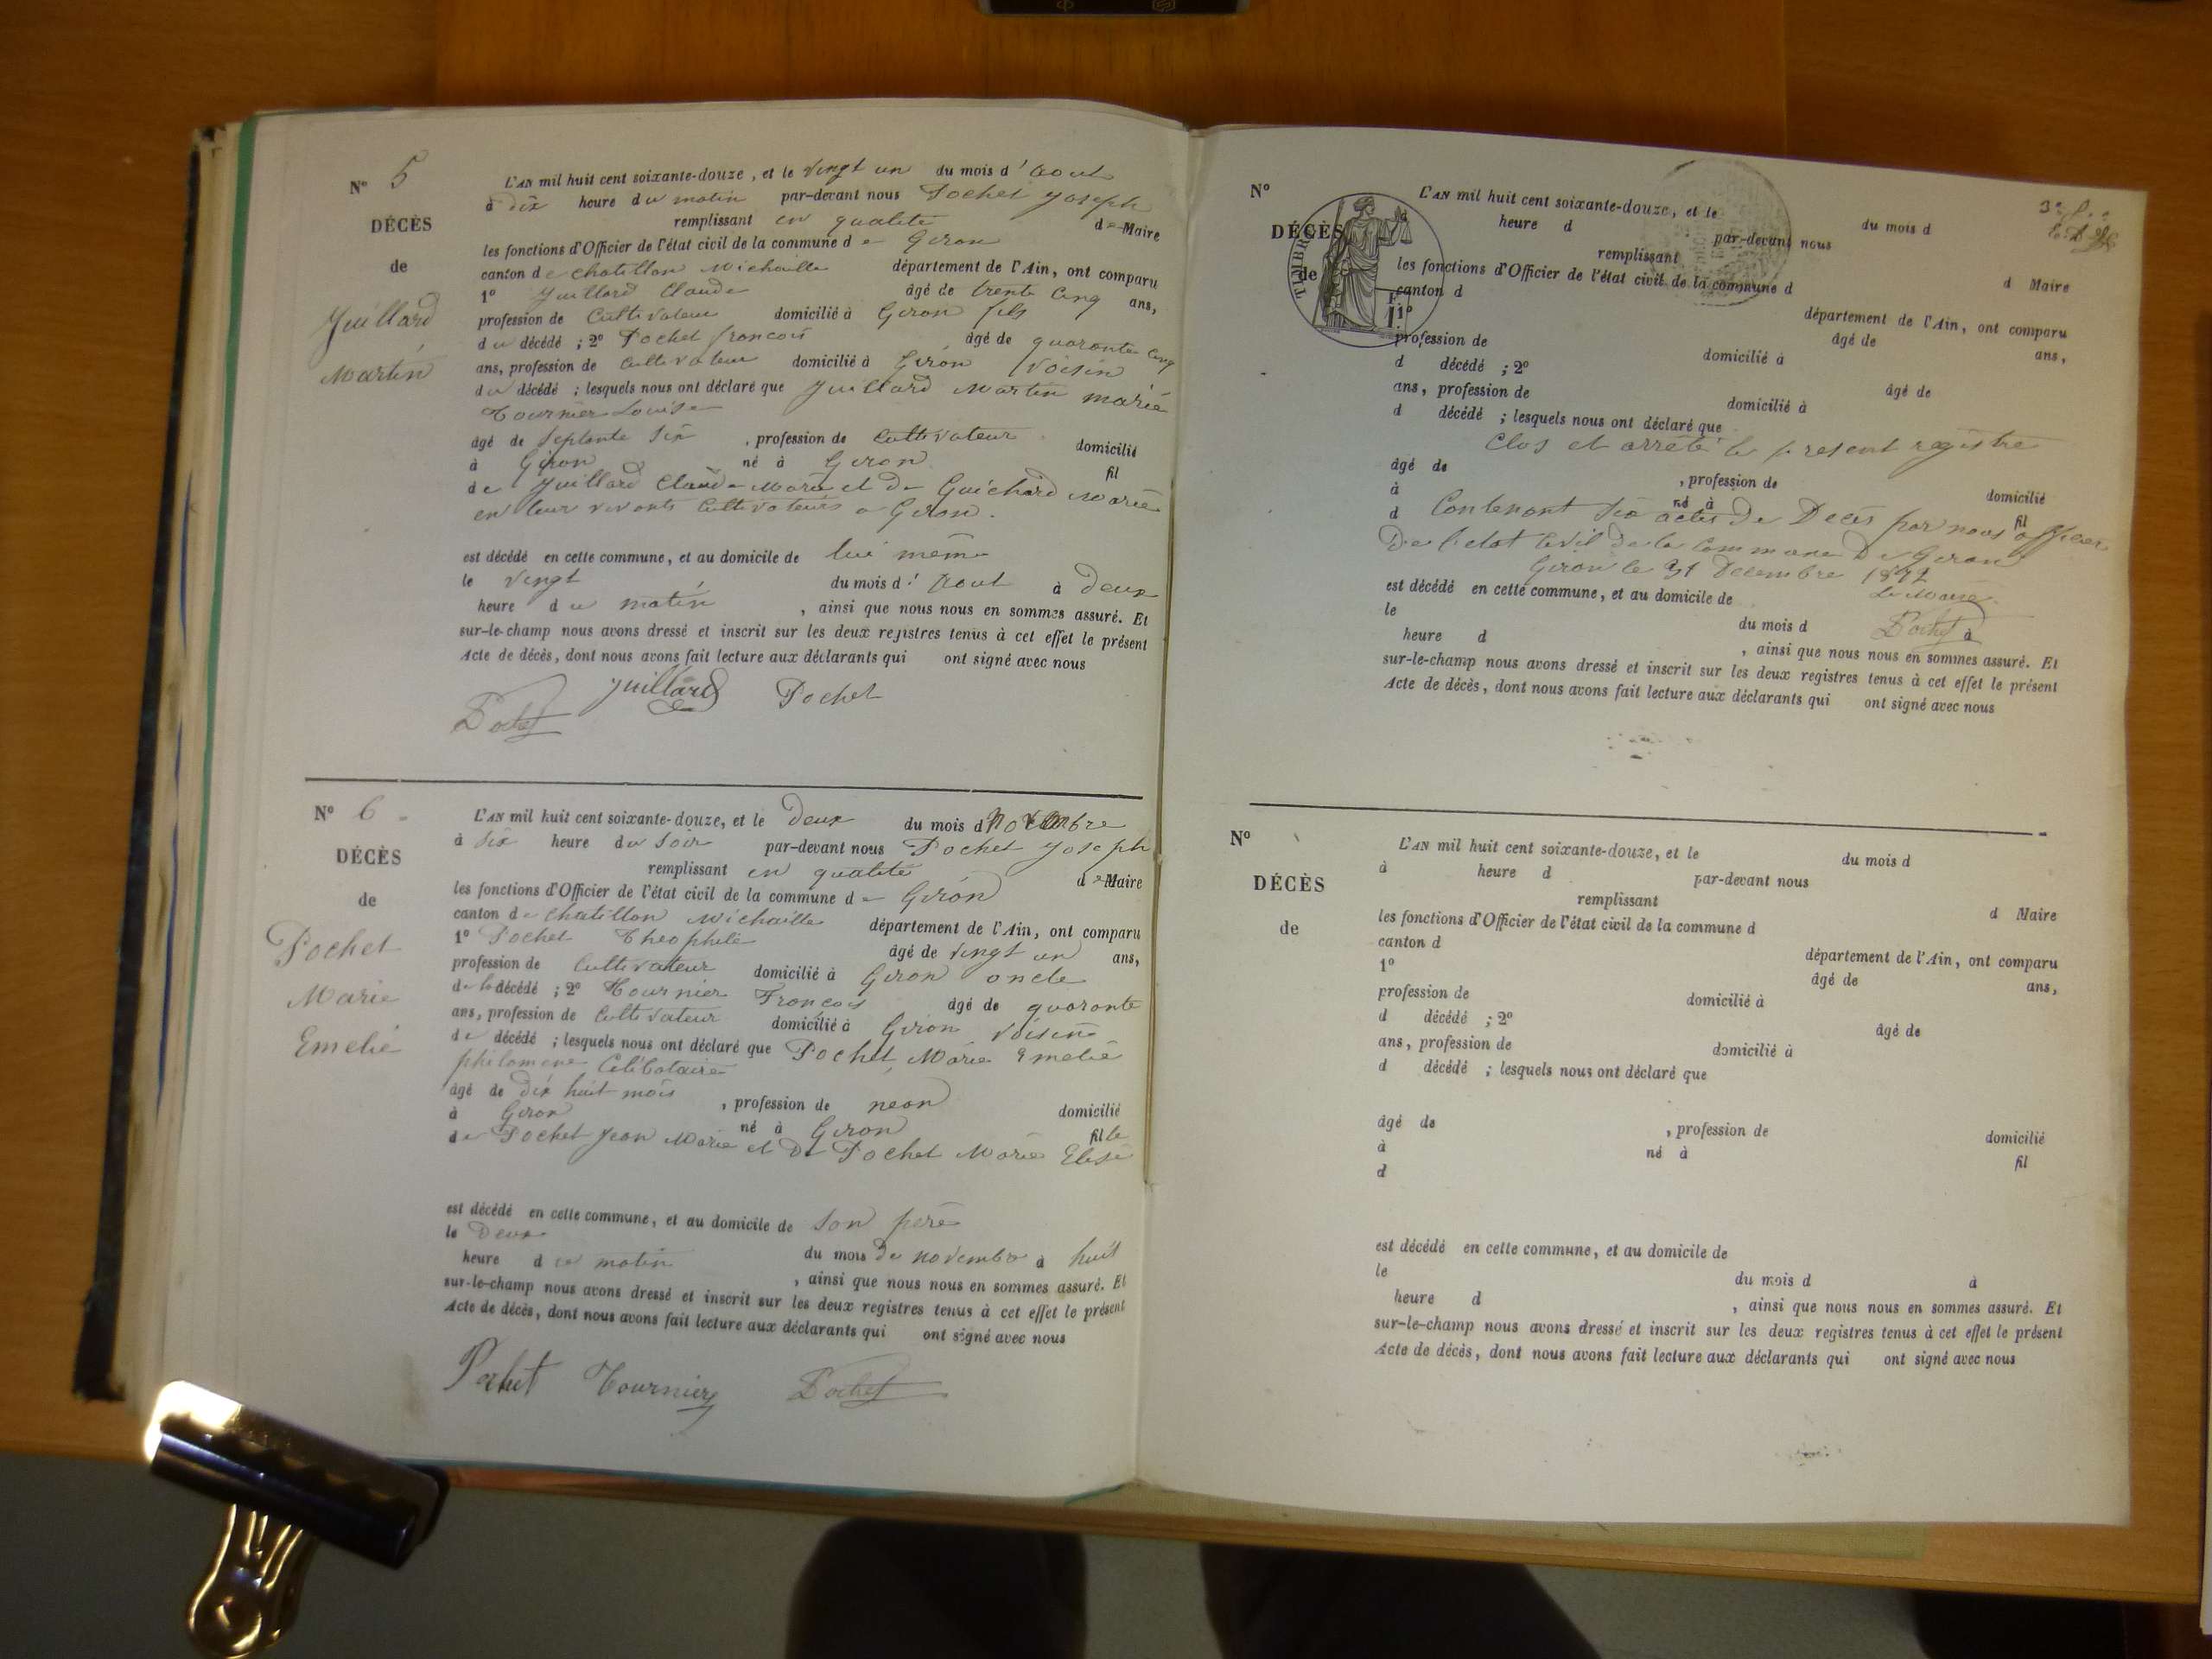 Nº 5
DÉCÈS
de
Juillard
Martin
L'AN mil huit cent soixante-douze, et le vingt un du mois d'aout
à dix heure du matin par-devant nous Pochet Joseph
remplissant en qualité de Maire
les fonctions d'Officier de l'état civil de la commune de Giron
canton de chatillon Michaille département de l'Ain, ont comparu
1º Juillard Claude âgé de trente cinq ans,
profession de Cultivateur domicilié à Giron fils
du décédé ; 2º Pochet francois âgé de quarante cinq
ans, profession de cultivateur domicilié à Giron Voisin
du décédé ; lesquels nous ont déclaré que Juillard Martin marié
Tournier Louise
âgé de septante six , profession de cultivateur domicilié
à Giron né à Giron fil
de Juillard Claude Marie et de Guichard Marie
en leur vivants Cultivateurs a Giron.
est décédé en cette commune, et au domicile de lui même
le vingt du mois d'Aout à deux
heure du matin , ainsi que nous nous en sommes assuré. Et
sur-le-champ nous avons dressé et inscrit sur les deux registres tenus à cet effet le présent
Acte de décès, dont nous avons fait lecture aux déclarants qui ont signé avec nous
Juillard Pochet
Pochet
Nº 6
DÉCÈS
de
Pochet
Marie
Emelie
L'AN mil huit cent soixante-douze, et le deux du mois d Novembre
à six heure du soir par-devant nous Pochet Joseph
remplissant en qualité de Maire
les fonctions d'Officier de l'état civil de la commune de Giron
canton de chatillon Michaille département de l'Ain, ont comparu
1º Pochet Theophile âgé de vingt un ans,
profession de Cultivateur domicilié à Giron oncle
de la décédé ; 2º Tournier François âgé de quarante
ans, profession de Cultivateur domicilié à Giron voisin
de décédé ; lesquels nous ont déclaré que Pochet Marie Emelie
philomene Celibataire
âgé de dix huit mois , profession de neon domicilié
à Giron né à Giron fille
de Pochet Jean Marie et De Pochet Marie Elise
est décédé en cette commune, et au domicile de son père
le Deux du mois de novembre à huit
heure du matin , ainsi que nous nous en sommes assuré. Et
sur-le-champ nous avons dressé et inscrit sur les deux registres tenus à cet effet le présent
Acte de décès, dont nous avons fait lecture aux déclarants qui ont signé avec nous
Pochet Tournier Pochet
Nº
DÉCÈS
de
TIMBRE
L'AN mil huit cent soixante-douze, et le du mois d
heure d par-devant nous
remplissant d Maire
les fonctions d'Officier de l'état civil de la commune d
canton d département de l'Ain, ont comparu
1º âgé de ans,
profession de domicilié à
d décédé ; 2º âgé de
ans, profession de domicilié à
d décédé ; lesquels nous ont déclaré que
Clos et arrêté le present registre
âgé de , profession de domicilié
à né à fil
d Contenant six actes De Decès par nous officier
De l'etat Civil de la Commune De Giron
Giron le 31 Decembre 1872
est décédé en cette commune, et au domicile de Le Maire
le du mois d Pochet à
heure d , ainsi que nous nous en sommes assuré. Et
sur-le-champ nous avons dressé et inscrit sur les deux registres tenus à cet effet le présent
Acte de décès, dont nous avons fait lecture aux déclarants qui ont signé avec nous
Nº
DÉCÈS
de
L'AN mil huit cent soixante-douze, et le du mois d
à heure d par-devant nous
remplissant d Maire
les fonctions d'Officier de l'état civil de la commune d
canton d département de l'Ain, ont comparu
1º âgé de ans,
profession de domicilié à
d décédé ; 2º âgé de
ans, profession de domicilié à
d décédé ; lesquels nous ont déclaré que
âgé de , profession de domicilié
à né à fil
d
est décédé en cette commune, et au domicile de
le du mois d à
heure d , ainsi que nous nous en sommes assuré. Et
sur-le-champ nous avons dressé et inscrit sur les deux registres tenus à cet effet le présent
Acte de décès, dont nous avons fait lecture aux déclarants qui ont signé avec nous